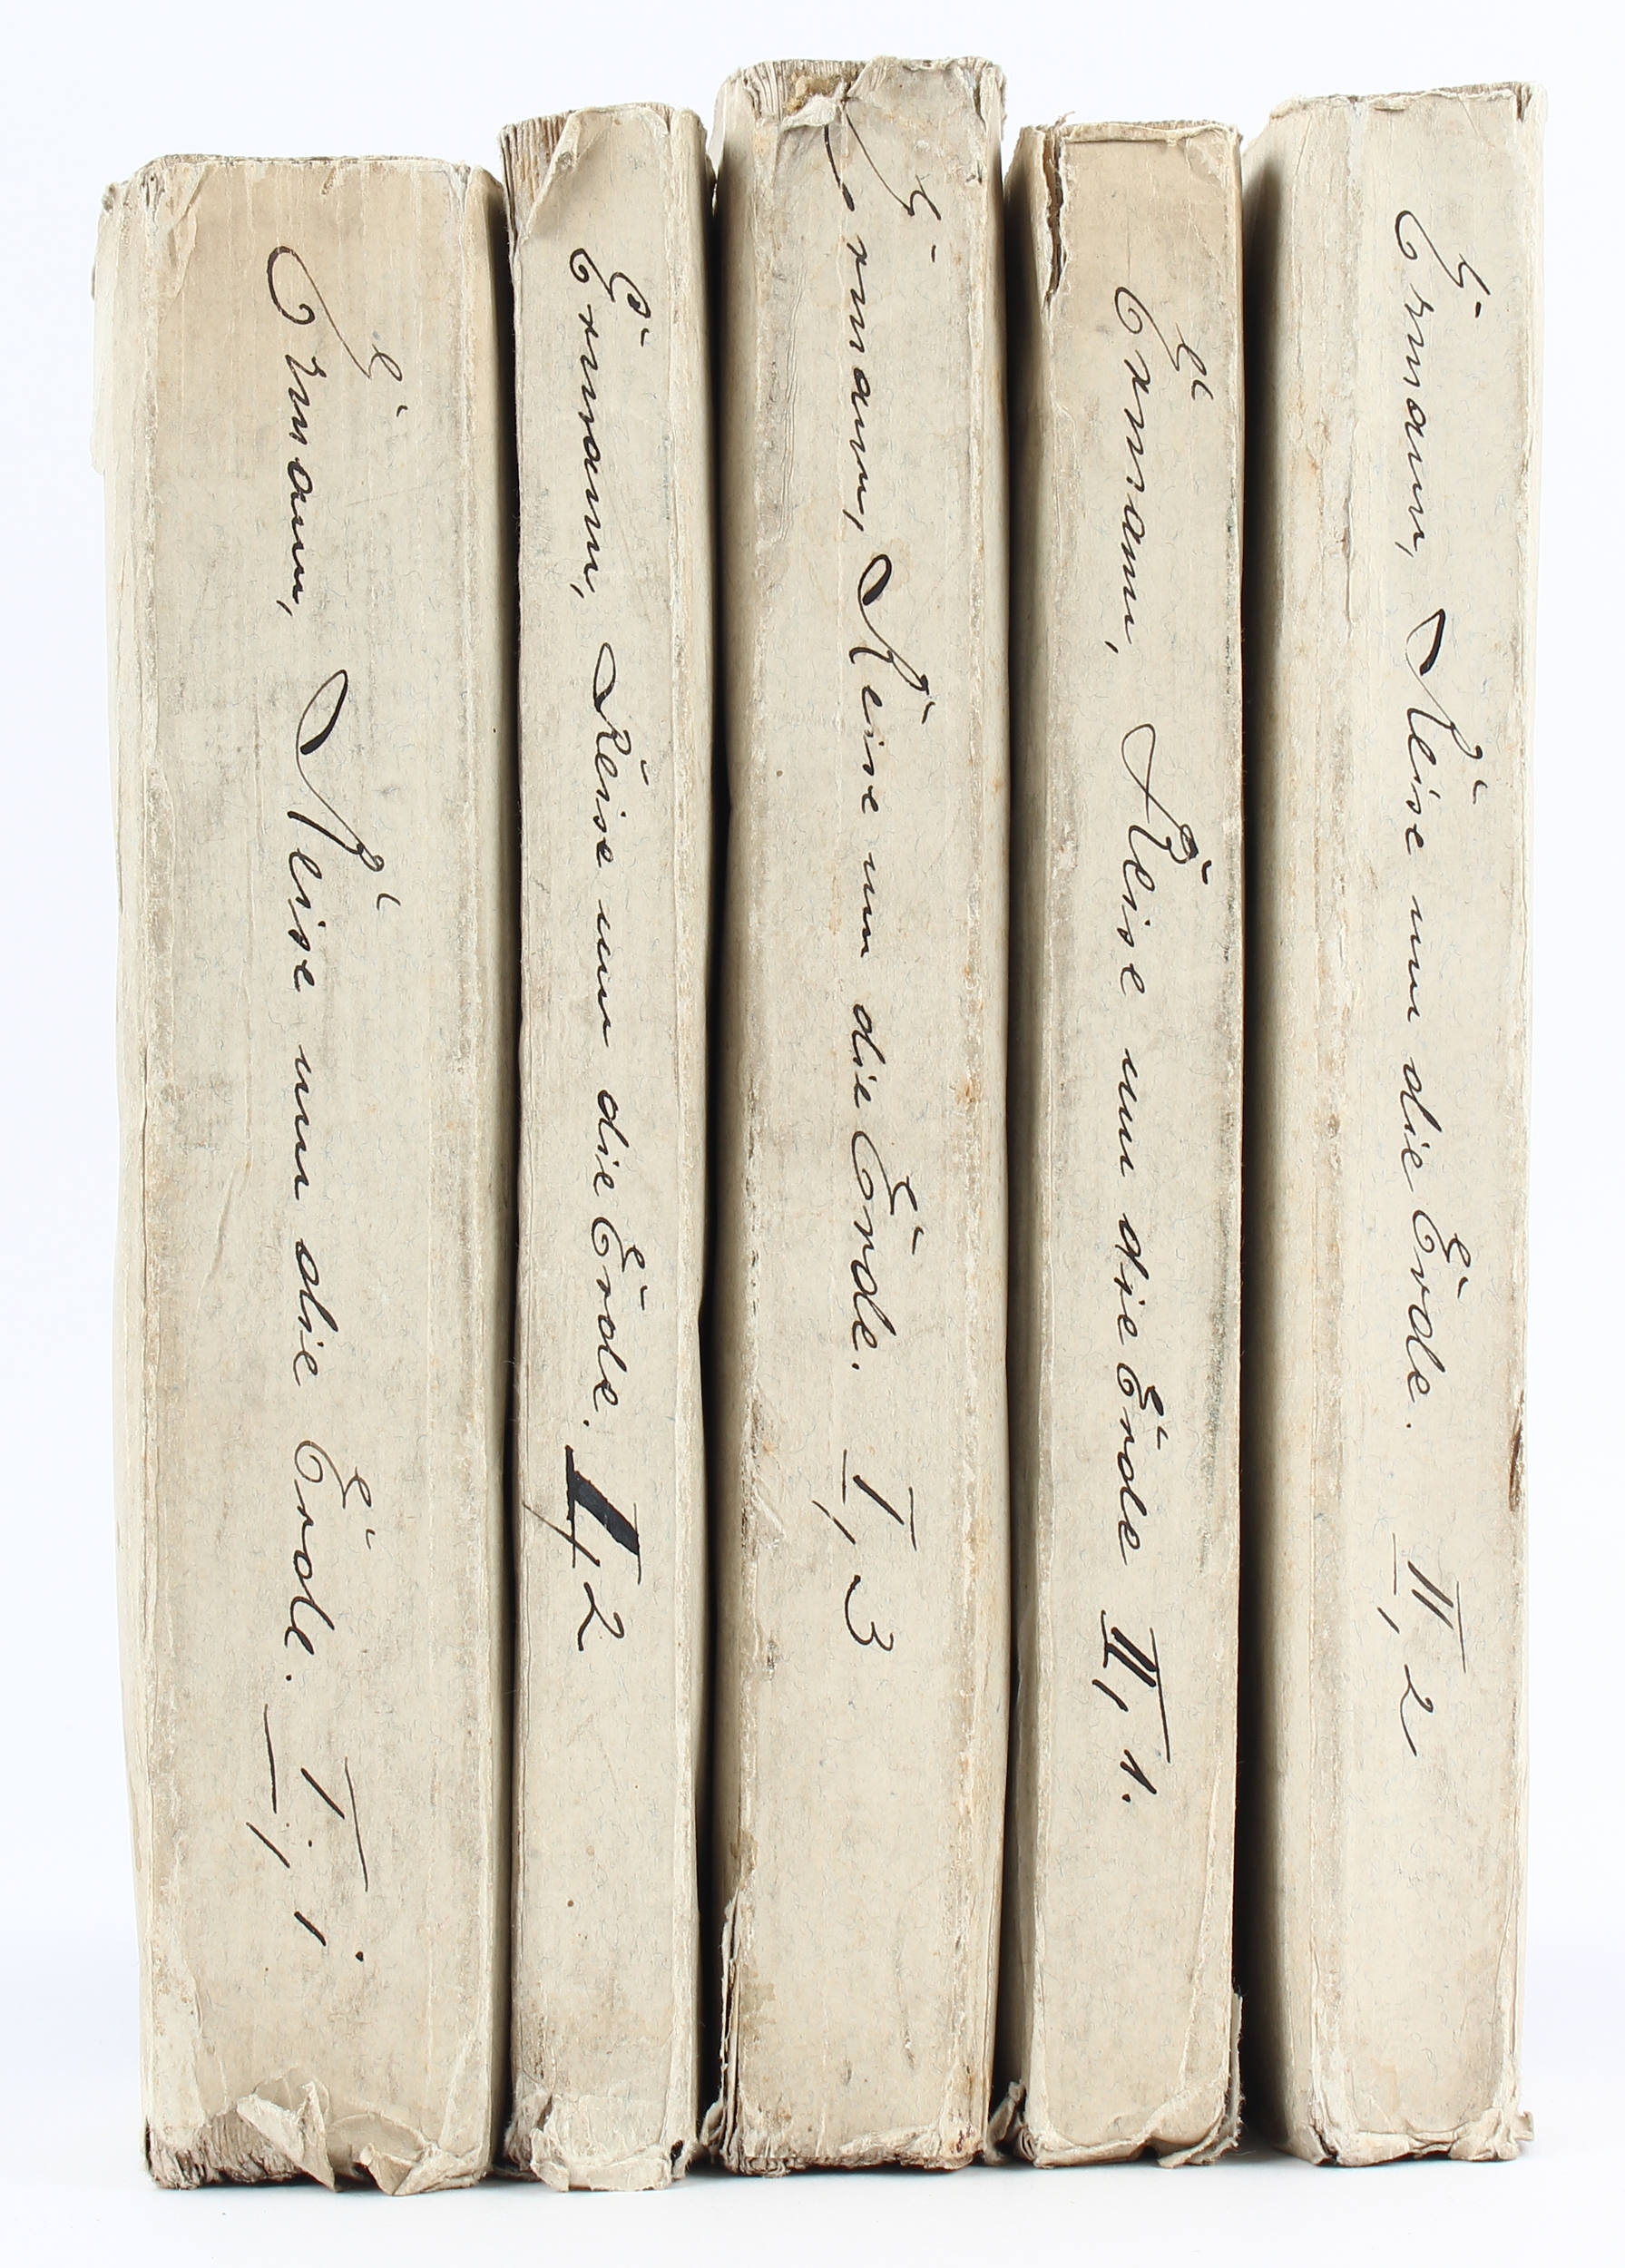 Ermann, Reise um die Erde. I, 1
Ermann, Reise um die Erde. I, 2
Ermann, Reise um die Erde. I, 3
Ermann, Reise um die Erde II, 1.
Ermann, Reise um die Erde. II, 2